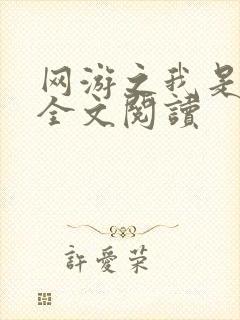 网游之我是
全文閱讀
許愛荣